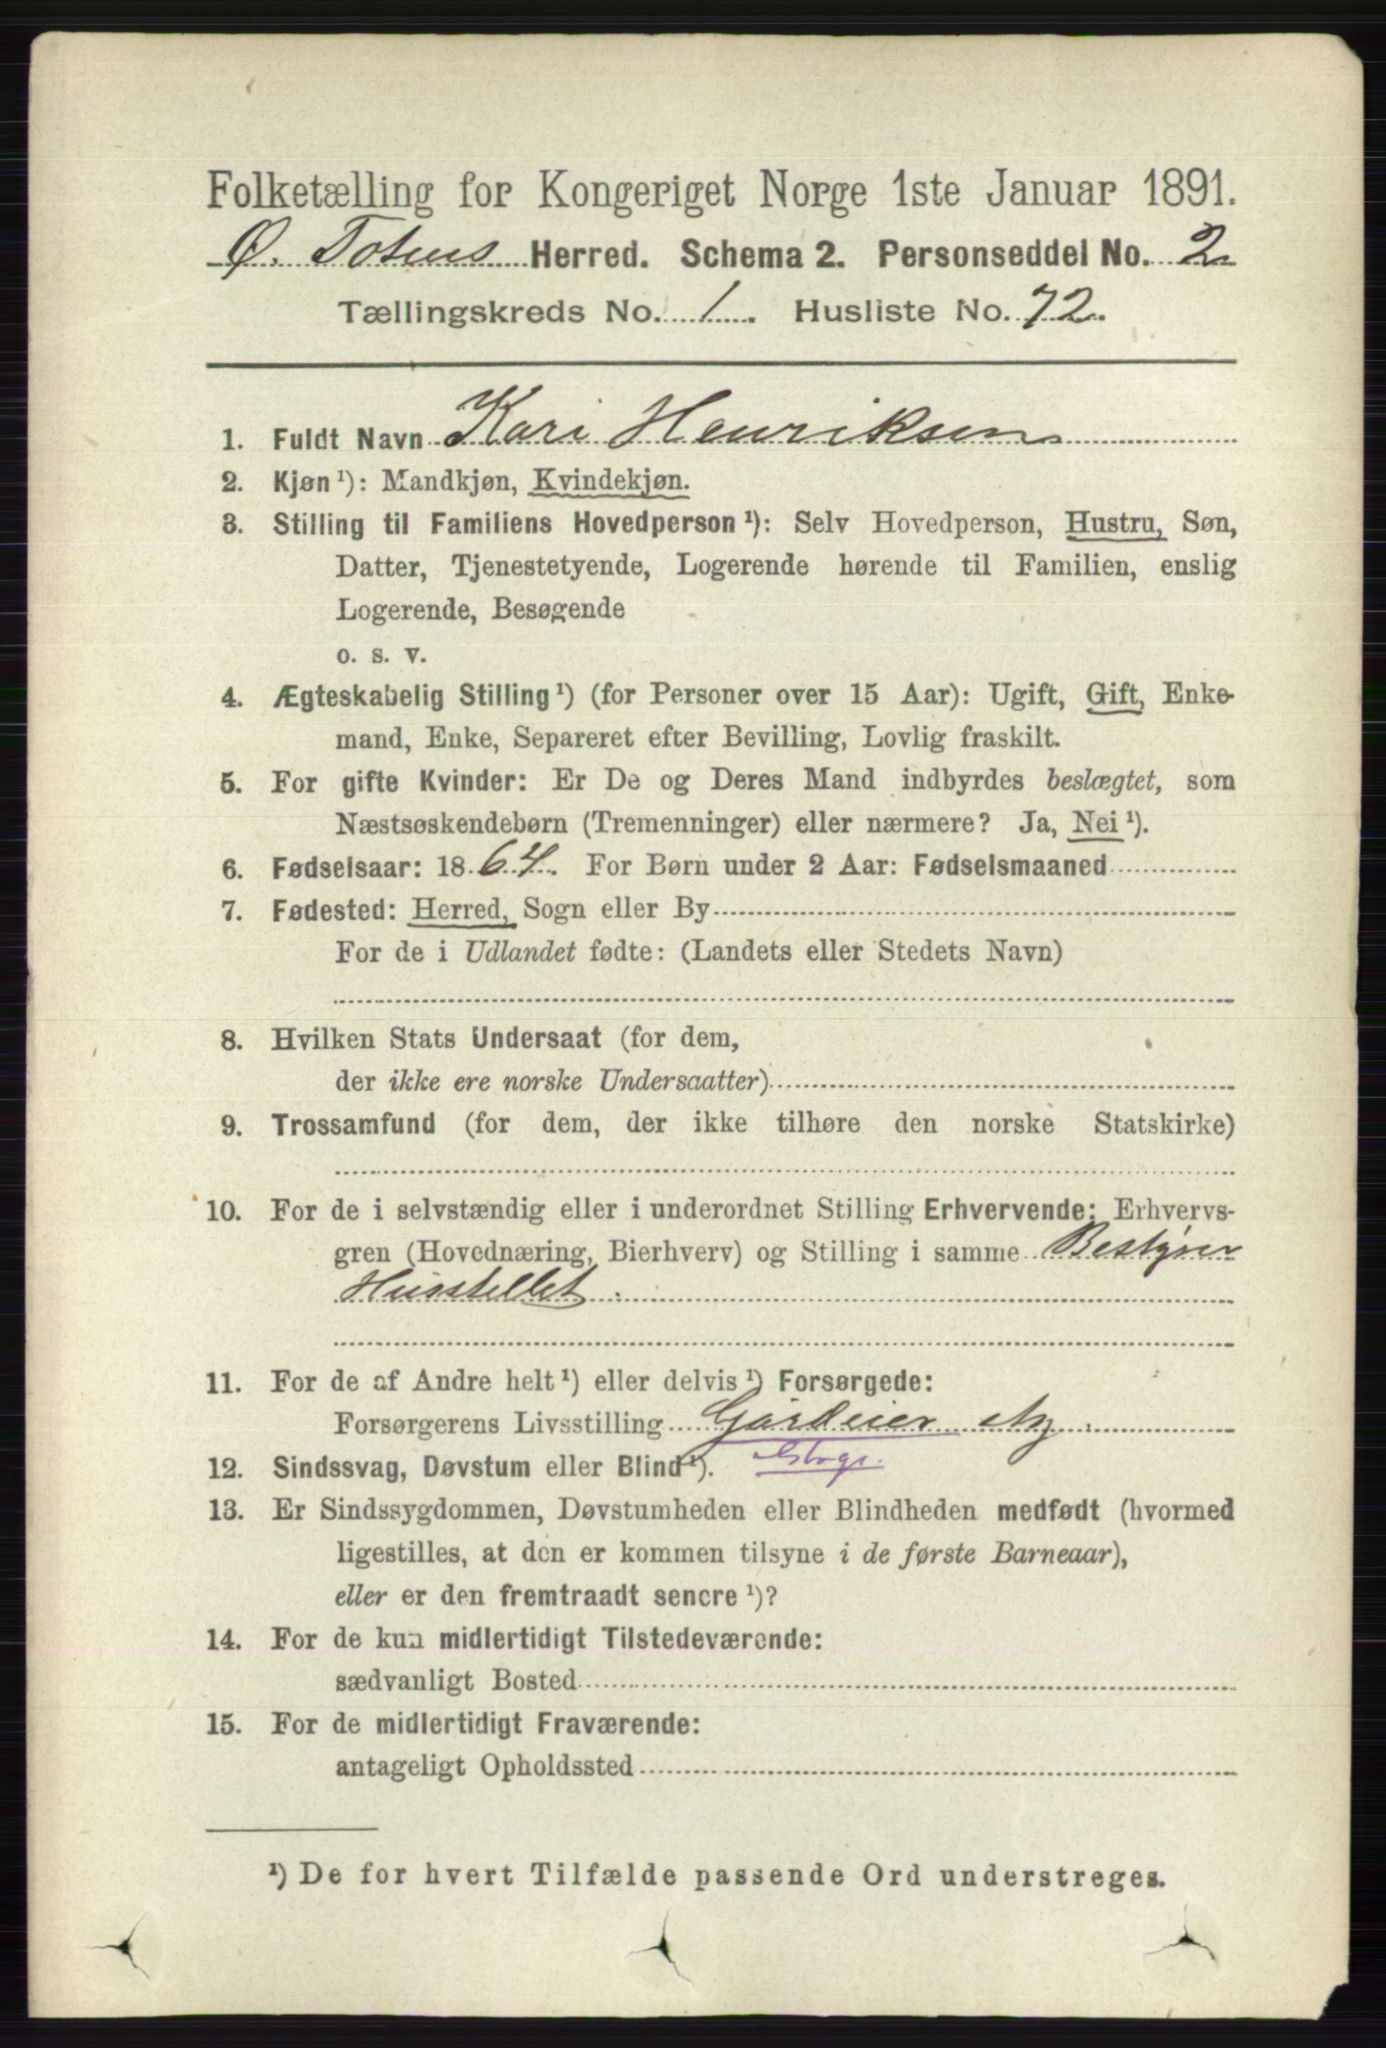 Folketælling for Kongeriget Norge 1ste Januar 1891.
Ø. Totens Herred. Schema 2. Personseddel No. 2
Tællingskreds No. 1. Husliste No. 72.
1. Fuldt Navn Kari Henriksen
2. Kjøn ¹): Mandkjøn, Kvindekjøn.
3. Stilling til Familiens Hovedperson ¹): Selv Hovedperson, Hustru, Søn,
Datter, Tjenestetyende, Logerende hørende til Familien, enslig
Logerende, Besøgende
o. s. v.
4. Ægteskabelig Stilling ¹) (for Personer over 15 Aar): Ugift, Gift, Enke-
mand, Enke, Separeret efter Bevilling, Lovlig fraskilt.
5. For gifte Kvinder: Er De og Deres Mand indbyrdes beslægtet, som
Næstsøskendebørn (Tremenninger) eller nærmere? Ja, Nei ¹).
6. Fødselsaar: 1864. For Børn under 2 Aar: Fødselsmaaned
7. Fødested: Herred, Sogn eller By
For de i Udlandet fødte: (Landets eller Stedets Navn)
8. Hvilken Stats Undersaat (for dem,
der ikke ere norske Undersaatter)
9. Trossamfund (for dem, der ikke tilhøre den norske Statskirke)
10. For de i selvstændig eller i underordnet Stilling Erhvervende: Erhvervs-
gren (Hovednæring, Bierhverv) og Stilling i samme Bestyrer
Husstellet.
11. For de af Andre helt ¹) eller delvis ¹) Forsørgede:
Forsørgerens Livsstilling Gårdeier
12. Sindssvag, Døvstum eller Blind ¹).
13. Er Sindssygdommen, Døvstumheden eller Blindheden medfødt (hvormed
ligestilles, at den er kommen tilsyne i de første Barneaar),
eller er den fremtraadt senere ¹)?
14. For de kun midlertidigt Tilstedeværende:
sædvanligt Bosted
15. For de midlertidigt Fraværende:
antageligt Opholdssted
¹) De for hvert Tilfælde passende Ord understreges.